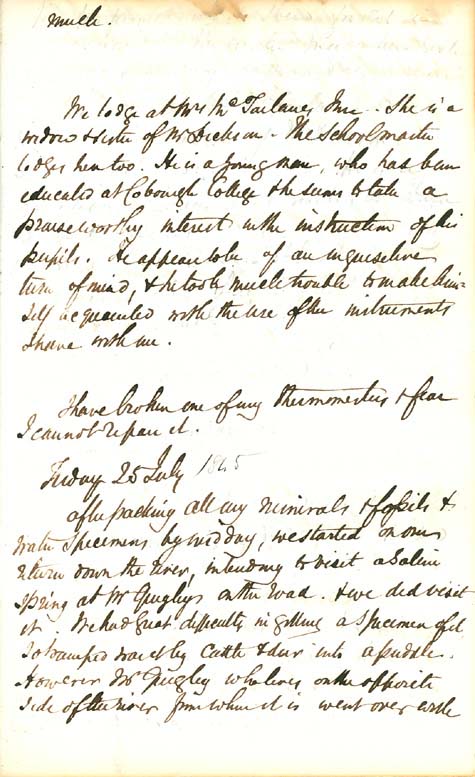 much.
We lodge at Mrs McFarlane's Inn. She is a
widow & sister of Mr Dickson. The schoolmaster
lodges here too. He is a young man, who has been
educated at Cobourgh College & he seems to take a
praiseworthy interest in the instruction of his
pupils. He appears to be of an inquisitive
turn of mind, & he took much trouble to make him=
self acquainted with the use of the instruments
I have with me.
I have broken one of my thermometers & fear
I cannot repair it.
Friday 25 July 1845
After packing all my minerals & fossils &
water specimens by midday, we started on our
return down the river, intending to visit a Saline
spring at Mr Quigley's on the road. & we did visit
it. We had great difficulty in getting a specimen of it
So tramped was it by cattle & deer into a puddle.
However Mr Quigley who lives on the opposite
side of the river from where it is went over with